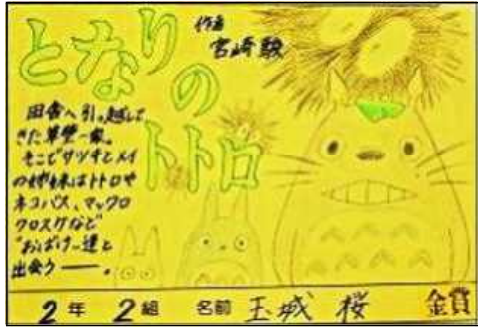 となりの
トトロ
作者
宮崎駿
田舎へ引っ越して
きた草壁一家。
そこでサツキとメイ
の姉妹はトトロや
ネコバス、マックロ
クロスケなど
"おばけ"達と
出会う――。
2年 2組 名前 玉城 桜 金賞